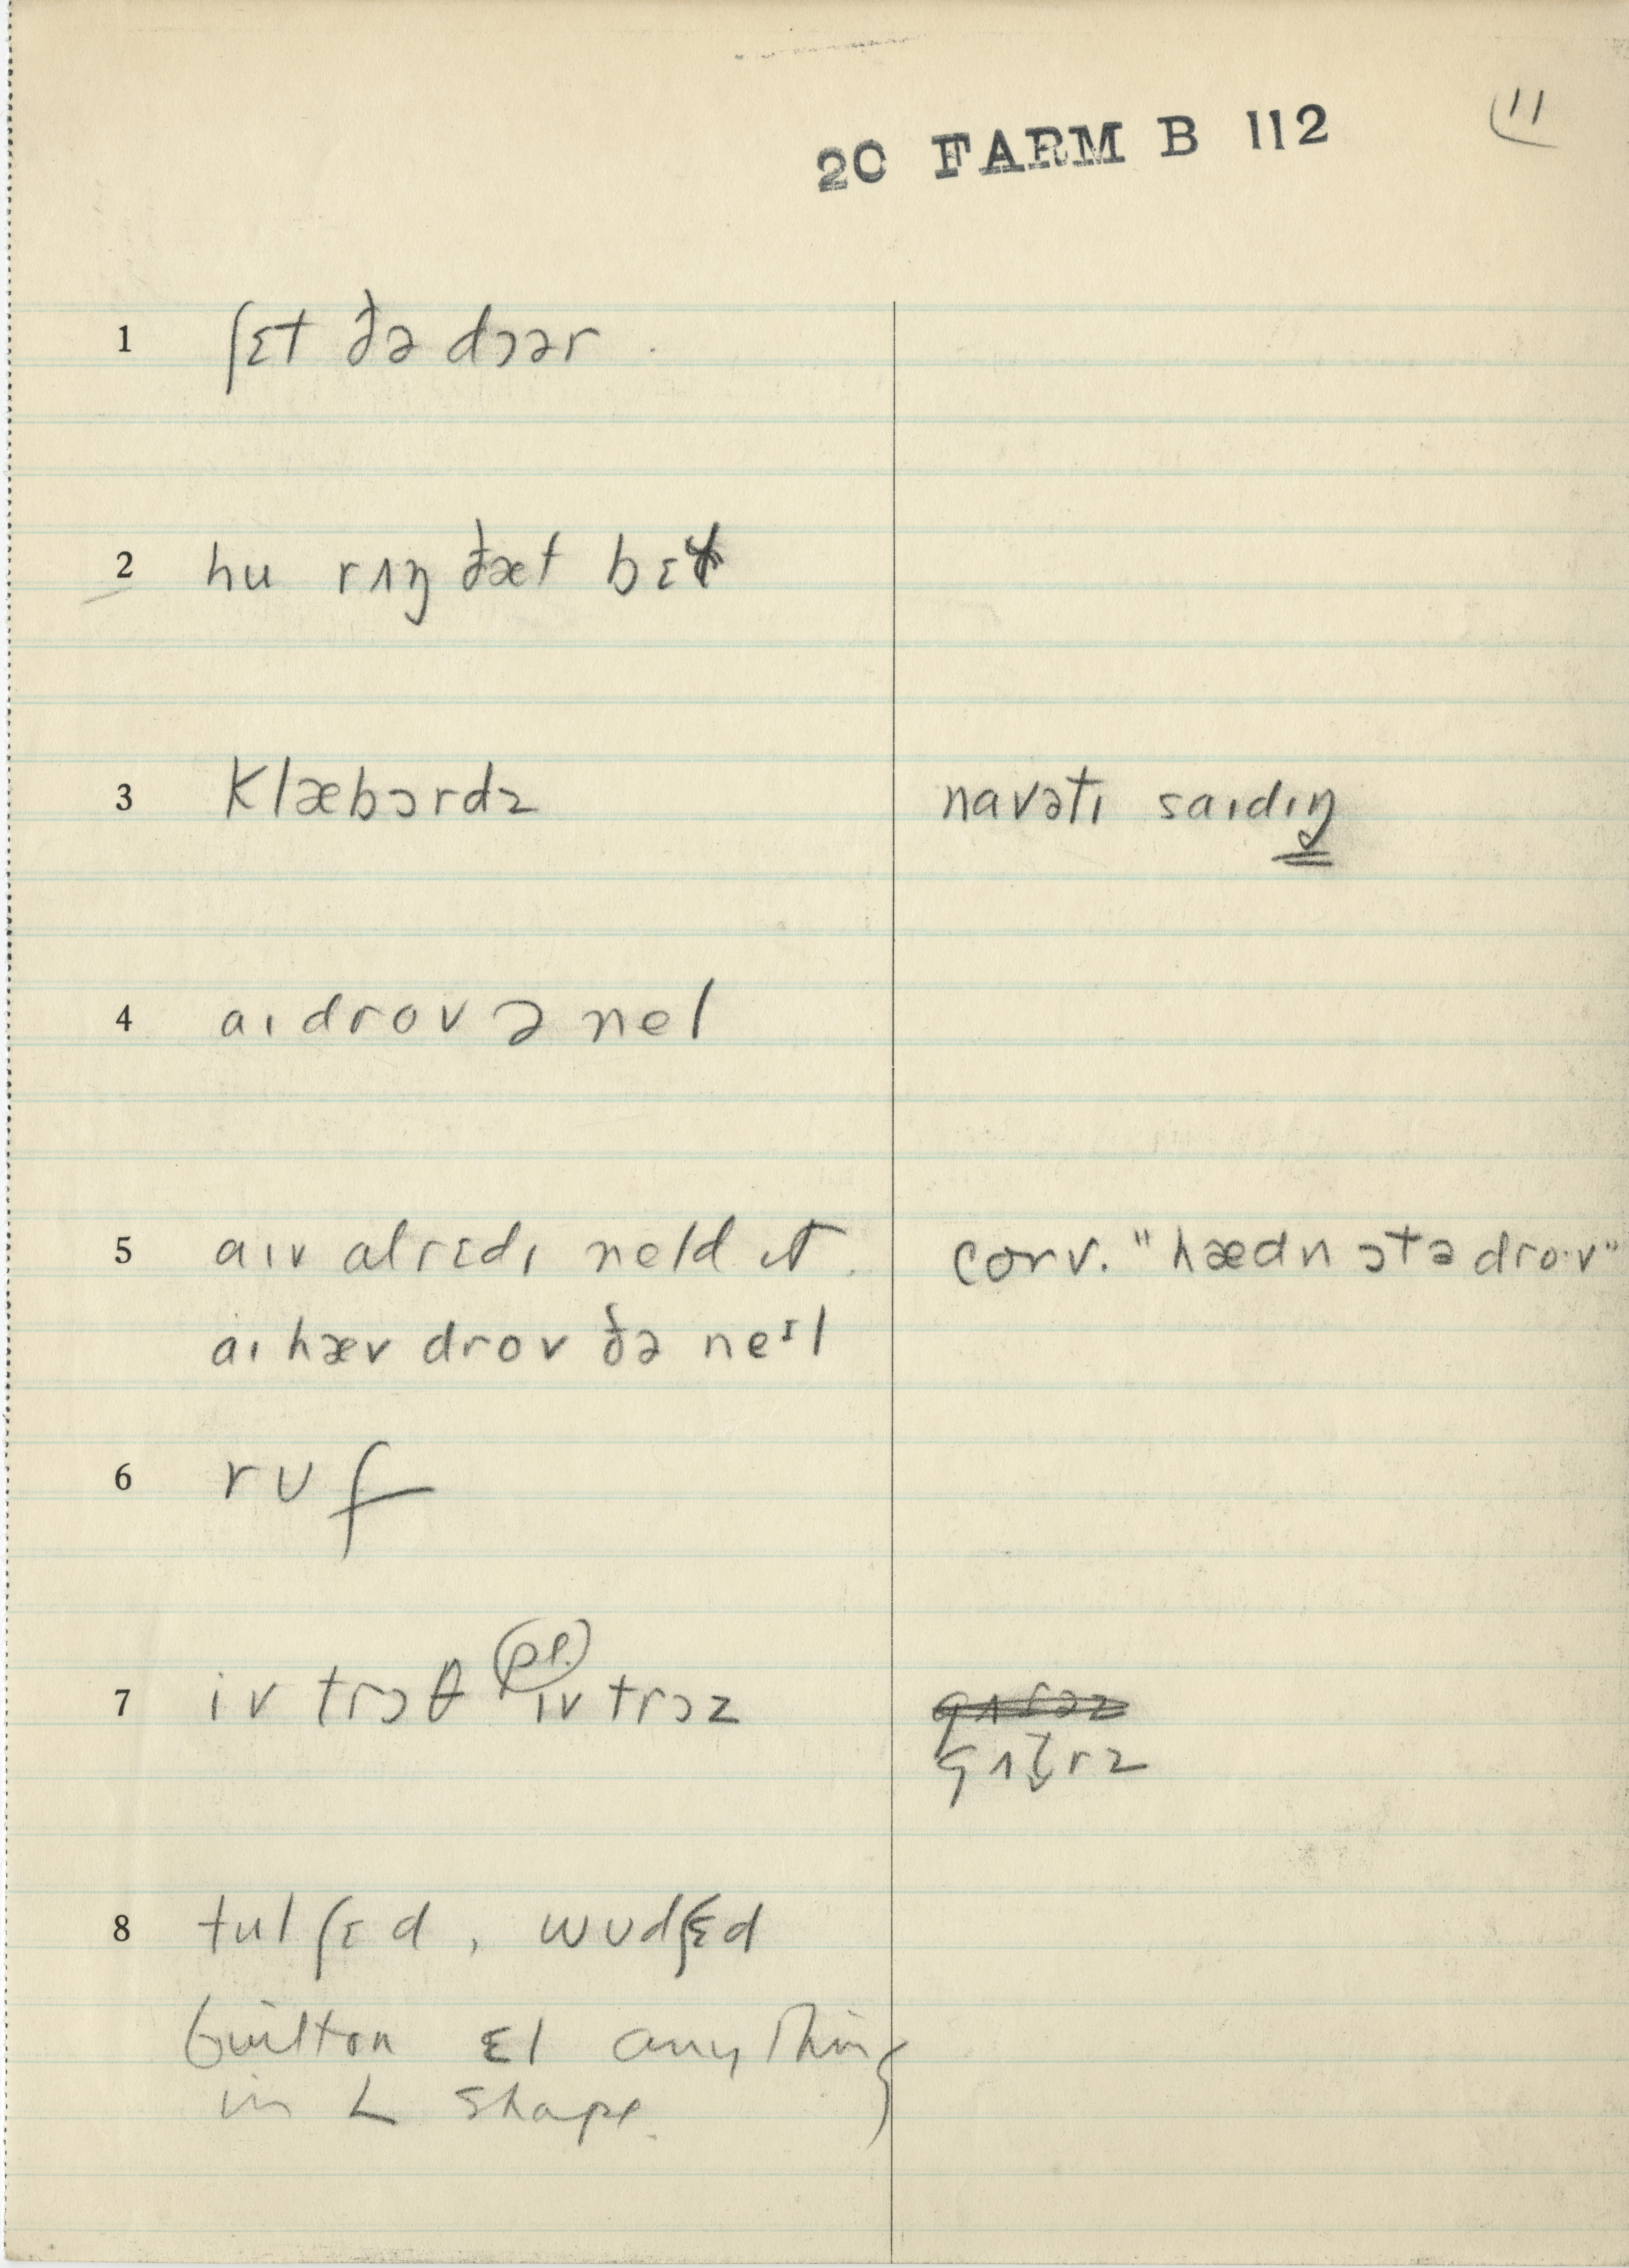 20 FARM B 112
11
1 ʃɛt ðə dɔər.
2 hu rʌŋ ðæt bɛɫ
3 klæbɔrdz navəti saɪdɪŋ
4 aɪ drov ə nel
5 aɪv alrɛdɪ neld ɪt. conv. "hædn ɔtə dro·v"
aɪ hæv drov ðə neᶦl
6 rʊf
7 iv trɔθ (pl.) iv trɔz
gʌt̬rz
8 tul ʃɛd, wʊdʃɛd
built on ɛl anything
in L shape.